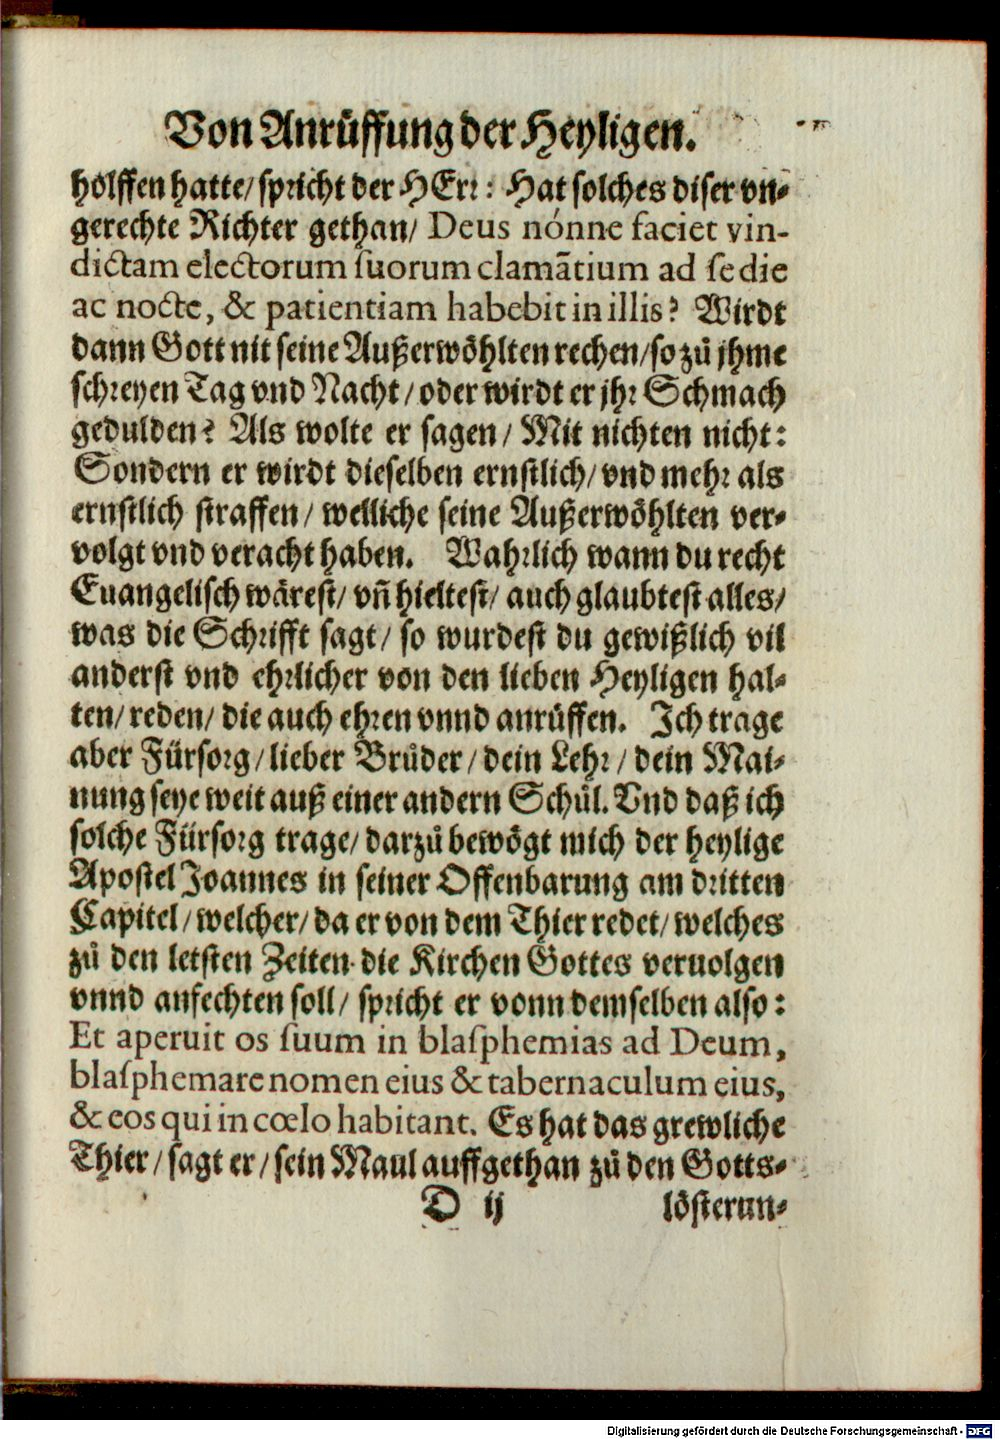 Von Anrůffung der Heyligen.
holffen hatte/ spricht der HErr: Hat solches diser vn-
gerechte Richter gethan/ Deus nónne faciet vin-
dictam electorum suorum clamãtium ad se die
ac nocte, & patientiam habebit in illis? Wirdt
dann Gott nit seine Außerwöhlten rechen/ so zů jhme
schreyen Tag vnd Nacht/ oder wirdt er jhr Schmach
gedulden? Als wolte er sagen/ Mit nichten nicht:
Sondern er wirdt dieselben ernstlich/ vnd mehr als
ernstlich straffen/ welliche seine Außerwöhlten ver-
volgt vnd veracht haben. Wahrlich wann du recht
Euangelisch wärest/ vñ hieltest/ auch glaubtest alles/
was die Schrifft sagt/ so wurdest du gewißlich vil
anderst vnd ehrlicher von den lieben Heyligen hal-
ten/ reden/ die auch ehren vnnd anrůffen. Ich trage
aber Fürsorg/ lieber Brůder/ dein Lehr/ dein Mai-
nung seye weit auß einer andern Schůl. Vnd daß ich
solche Fürsorg trage/ darzů bewögt mich der heylige
Apostel Joannes in seiner Offenbarung am dritten
Capitel/ welcher/ da er von dem Thier redet/ welches
zů den letsten Zeiten die Kirchen Gottes veruolgen
vnnd anfechten soll/ spricht er vonn demselben also:
Et aperuit os suum in blasphemias ad Deum,
blasphemare nomen eius & tabernaculum eius,
& eos qui in cœlo habitant. Es hat das grewliche
Thier/ sagt er/ sein Maul auffgethan zů den Gotts-
D ij lösterun-
Digitalisierung gefördert durch die Deutsche Forschungsgemeinschaft - DFG